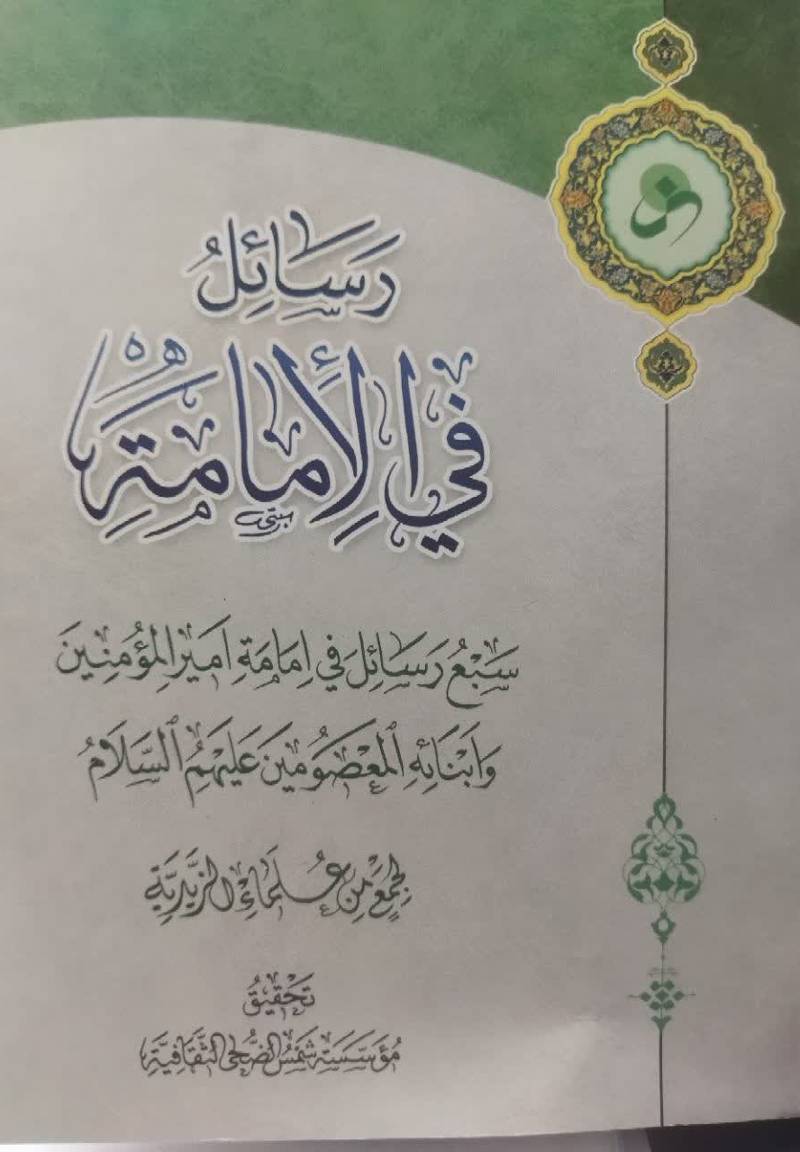 رَسَائِلُ
في الإمامة
سَبْعُ رَسَائِلَ في اِمَامَةِ اَميرِ المُؤْمِنِينَ
وَاَبْنَائِهِ المَعْصُومينَ عَلَيْهِمُ السَّلَامُ
لِجَمْعٍ مِنْ عُلَمَاءِ الزَّيْدِيَّةِ
تَحْقِيقُ
مُؤَسَّسَةِ شَمْسِ الضُّحَى الثَّقَافِيَّةِ